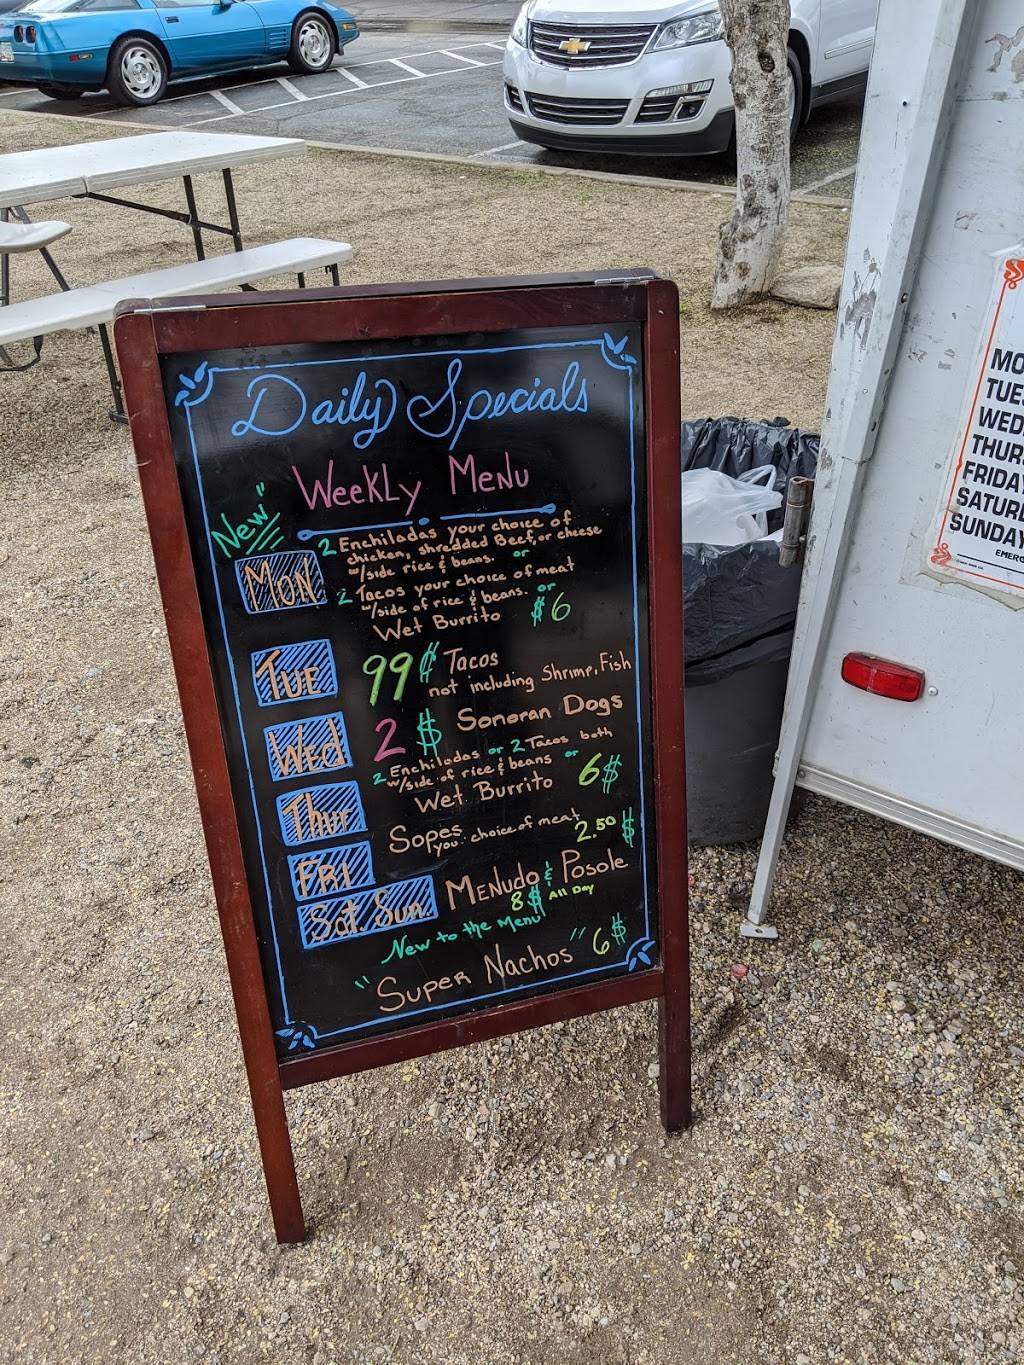 Daily Specials
Weekly Menu
"New"
Mon
2 Enchiladas your choice of
chicken, shredded Beef, or cheese
w/side rice & beans. or
2 Tacos your choice of meat
w/side of rice & beans. or
Wet Burrito $6
Tue
99¢ Tacos
not including Shrimp, Fish
Wed
2$ Sonoran Dogs
Thur
2 Enchiladas or 2 Tacos both
w/side of rice & beans or
Wet Burrito 6$
Fri
Sopes
you. choice of meat 2.50 $
Sat. Sun.
Menudo & Posole
8$ All Day
New to the Menu
"Super Nachos" 6$
MO
TUES
WED
THURS
FRIDAY
SATUR
SUNDAY
EMERG